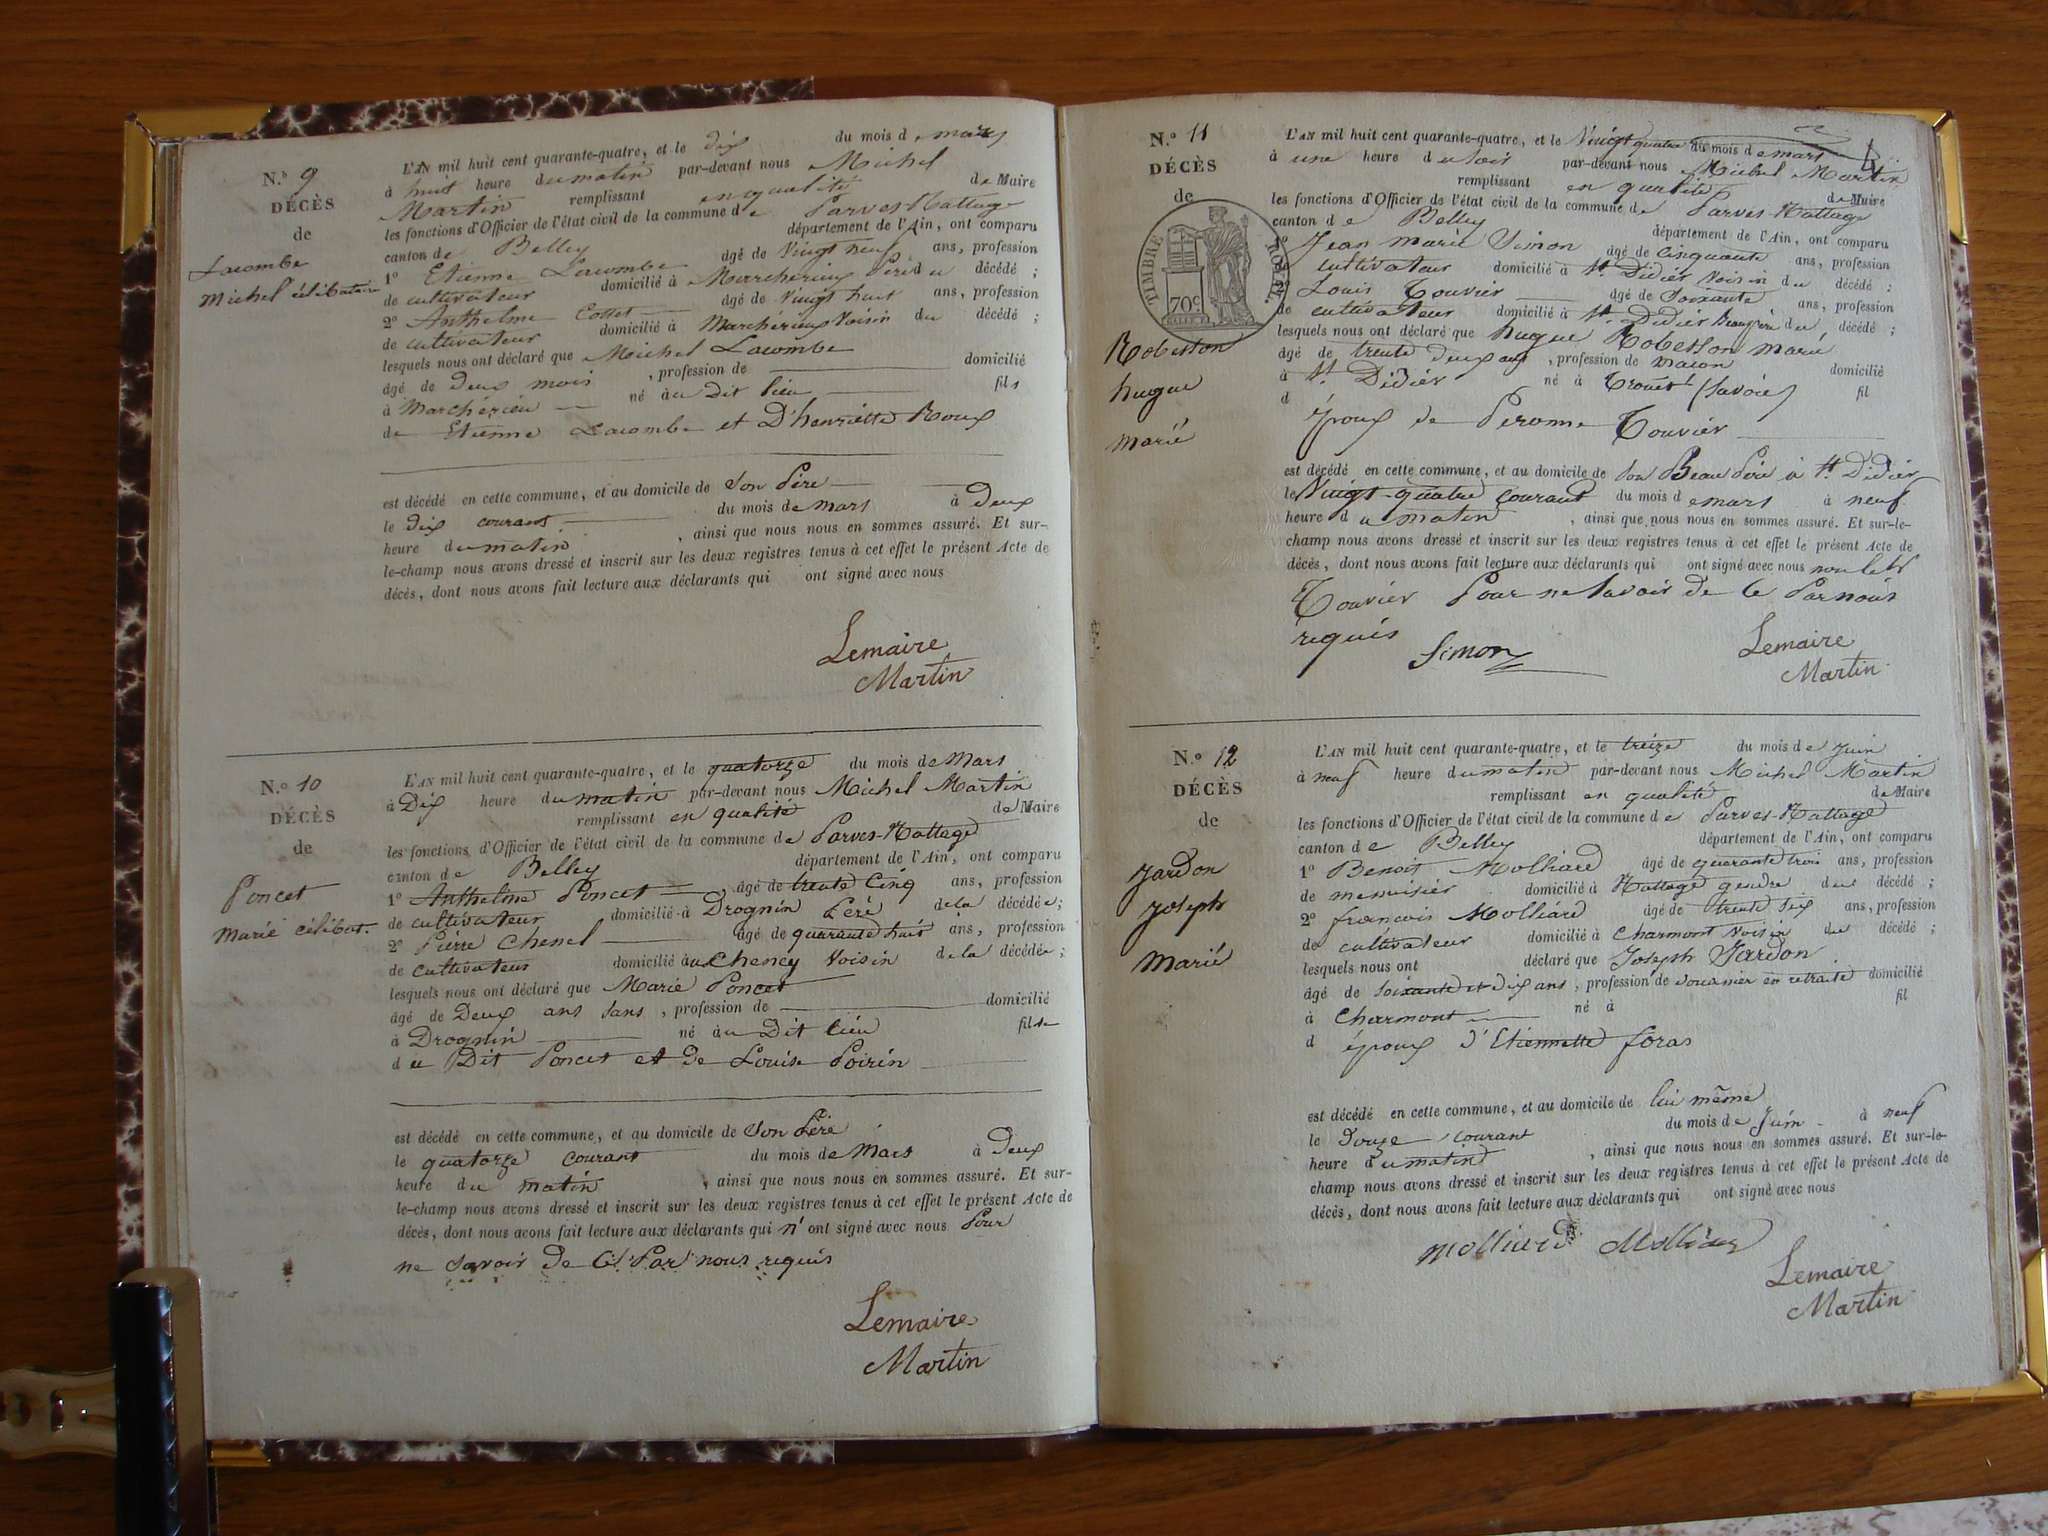 N.º 9
DÉCÈS
de
Lacombe
Michel célibataire
L'AN mil huit cent quarante-quatre, et le dix du mois de mars
à huit heure du matin par-devant nous Michel
Martin remplissant en qualité de Maire
les fonctions d'Officier de l'état civil de la commune de Parves-Nattage
canton de Belley département de l'Ain, ont comparu
1º Etienne Lacombe âgé de vingt neuf ans, profession
de cultivateur domicilié à Marchérieu Père du décédé ;
2º Anthelme Cottet âgé de vingt huit ans, profession
de cultivateur domicilié à Marchérieu Voisin du décédé ;
lesquels nous ont déclaré que Michel Lacombe
âgé de Deux mois , profession de domicilié
à Marchérieu né au Dit lieu fils
de Etienne Lacombe et D'henriette Roux
est décédé en cette commune, et au domicile de Son Père
le dix courant du mois de mars à Deux
heure du matin , ainsi que nous nous en sommes assuré. Et sur-
le-champ nous avons dressé et inscrit sur les deux registres tenus à cet effet le présent Acte de
décès, dont nous avons fait lecture aux déclarants qui ont signé avec nous
Lemaire
Martin
N.º 10
DÉCÈS
de
Poncet
Marie célibat.
L'AN mil huit cent quarante-quatre, et le quatorze du mois de Mars
à Dix heure du matin par-devant nous Michel Martin
remplissant en qualité de Maire
les fonctions d'Officier de l'état civil de la commune de Parves-Nattage
canton de Belley département de l'Ain, ont comparu
1º Anthelme Poncet âgé de trente Cinq ans, profession
de cultivateur domicilié à Drognin Père de la décédée ;
2º Pierre Chenel âgé de quarante huit ans, profession
de cultivateur domicilié au Cheney Voisin de la décédée ;
lesquels nous ont déclaré que Marie Poncet
âgé de Deux ans sans , profession de domicilié
à Drognin né au Dit lieu fille
du Dit Poncet et de Louise Poirin
est décédé en cette commune, et au domicile de Son Père
le quatorze courant du mois de Mars à Deux
heure du matin , ainsi que nous nous en sommes assuré. Et sur-
le-champ nous avons dressé et inscrit sur les deux registres tenus à cet effet le présent Acte de
décès, dont nous avons fait lecture aux déclarants qui n'ont signé avec nous Pour
ne Savoir de Ce Par nous requis
Lemaire
Martin
4
N.º 11
DÉCÈS
de
TIMBRE ROYAL.
70c
Robesson
hugue
marié
L'AN mil huit cent quarante-quatre, et le Vingt quatre du mois de mars
à une heure du soir par-devant nous Michel Martin
remplissant en qualité de Maire
les fonctions d'Officier de l'état civil de la commune de Parves-Nattage
canton de Belley département de l'Ain, ont comparu
1º Jean marie Simon âgé de Cinquante ans, profession
cultivateur domicilié à St Didier Voisin du décédé ;
Louis Touvier âgé de Soixante ans, profession
de cultivateur domicilié à St Didier Beaupère du décédé ;
lesquels nous ont déclaré que hugue Robesson marié
âgé de trente deux ans , profession de macon domicilié
à St Didier né à (Savoie) fil
d époux de Peronne Touvier
est décédé en cette commune, et au domicile de Son Beau Père à St Didier
le Vingt-quatre courant du mois de mars à neuf
heure du matin , ainsi que nous nous en sommes assuré. Et sur-le-
champ nous avons dressé et inscrit sur les deux registres tenus à cet effet le présent Acte de
décès, dont nous avons fait lecture aux déclarants qui ont signé avec nous non
Touvier Pour ne Savoir de Ce Par nous
requis
Simon Lemaire
Martin
N.º 12
DÉCÈS
de
Jardon
Joseph
Marié
L'AN mil huit cent quarante-quatre, et le treize du mois de Juin
à neuf heure du matin par-devant nous Michel Martin
remplissant en qualité de Maire
les fonctions d'Officier de l'état civil de la commune de Parves-Nattage
canton de Belley département de l'Ain, ont comparu
1º Benoit Molliard âgé de quarante trois ans, profession
de menuisier domicilié à Nattage gendre du décédé ;
2º françois Molliard âgé de trente six ans, profession
de cultivateur domicilié à Charmont Voisin du décédé ;
lesquels nous ont déclaré que Joseph Jardon
âgé de soixante et dix ans , profession de Douanier en retraite domicilié
à Charmont né à fil
d époux d'Etiennette foras
est décédé en cette commune, et au domicile de lui même
le Douze courant du mois de Juin à neuf
heure du matin , ainsi que nous nous en sommes assuré. Et sur-le-
champ nous avons dressé et inscrit sur les deux registres tenus à cet effet le présent Acte de
décès, dont nous avons fait lecture aux déclarants qui ont signé avec nous
Molliard Molliard
Lemaire
Martin